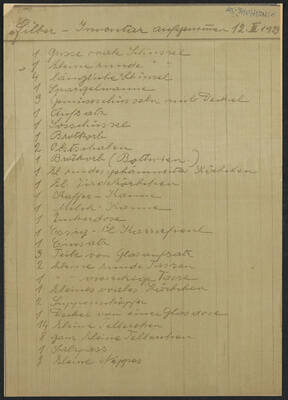 Silber-Inventar aufgenommen 12. III 1939
1 Grosse ovale Schüssel
1 kleine runde "
4 längliche Schüssel
1 Spargelwanne
3 Gemüseschüsseln mit Deckel
1 Aufsatz
1 Sosschüssel
1 Brotkorb
2 Obstschalen
1 Brotkorb
1 kl. rundes Körbchen
1 kl. Körbchen
1 Kaffee-Kanne
1 Milch-Kanne
1 Zuckerdose
1 Essig-Öl
1 Einsatz
3 Teile von Glasaufsatz
2 kleine runde Tassen
1 Tasse
1 kleines ovales Körbchen
2 Suppenschöpfer
1 Deckel von einer Glasdose
14 kleine Tellerchen
8 ganz kleine Tellerchen
1
3 kleine Nippes